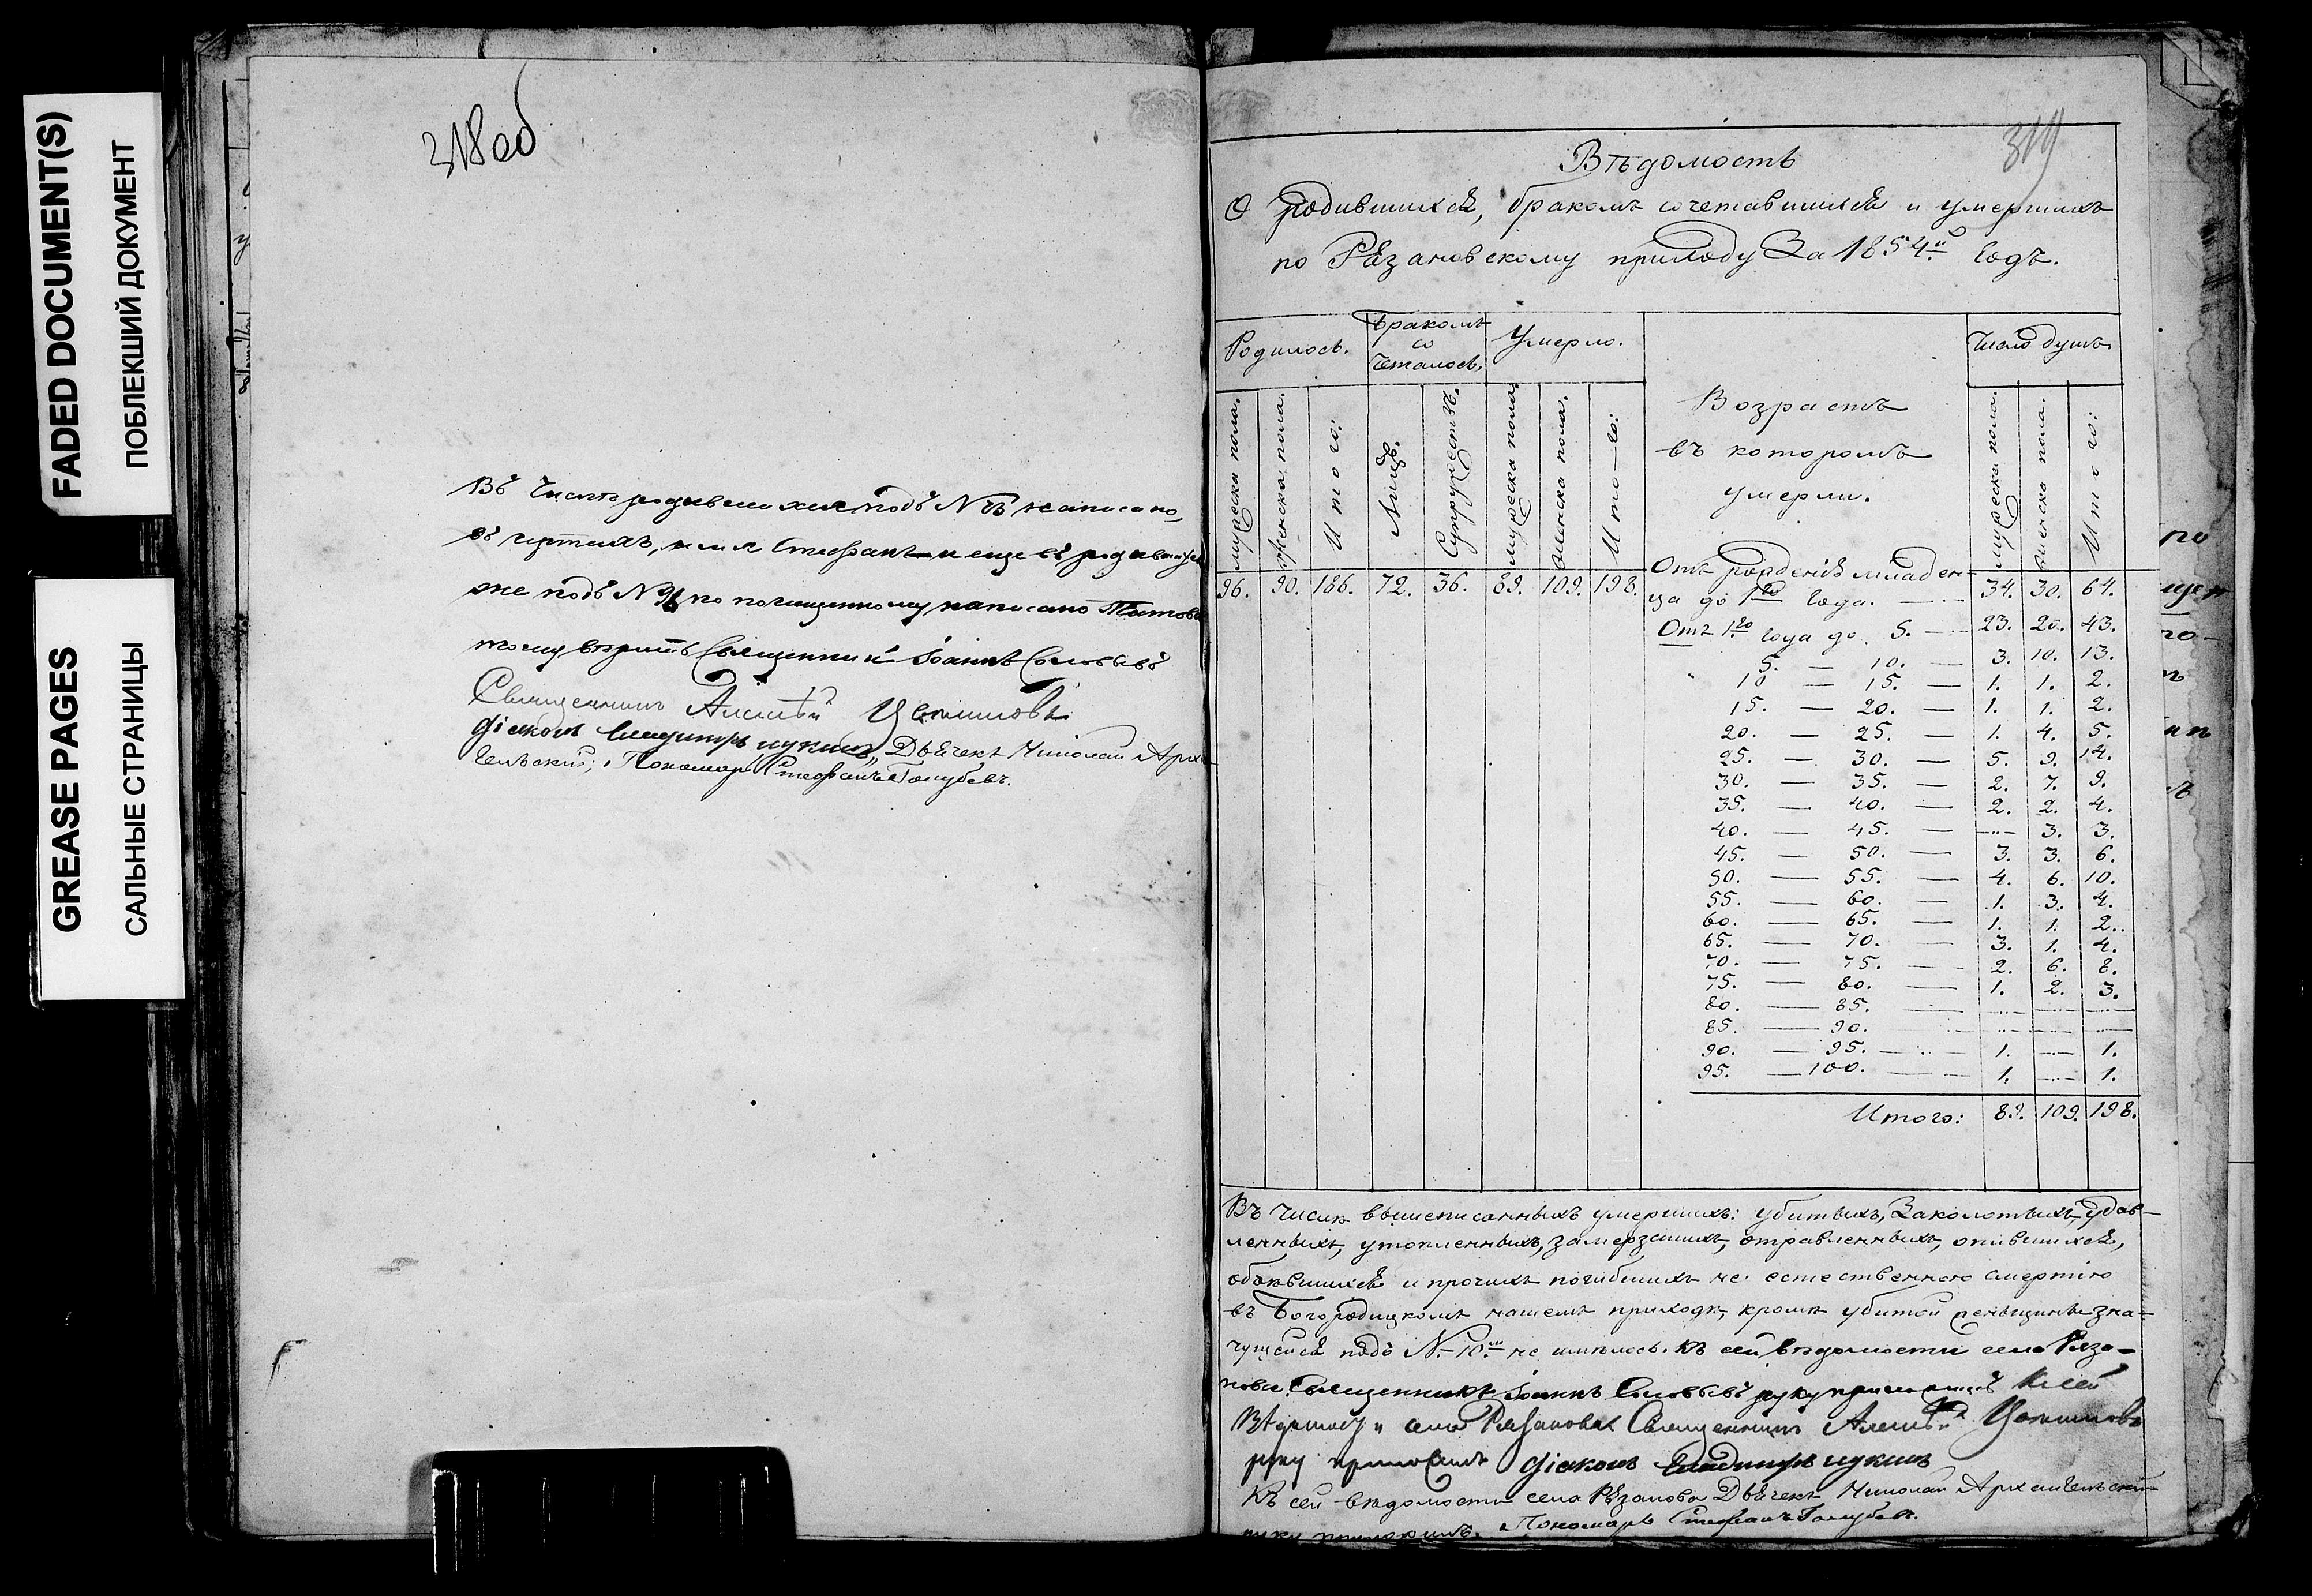 FADED DOCUMENT(S)
ПОБЛЕКШИЙ ДОКУМЕНТ
GREASE PAGES
САЛЬНЫЕ СТРАНИЦЫ
318 об
Въ числѣ родившихся подъ № написано
въ чертахъ, имя Стефанъ и еще въ родившихся
же подъ № по почищенному написано
тому вѣрить Священникъ Іоаннъ Соловьевъ
Священникъ Алексѣй
діаконъ Владимиръ Дьячекъ Николай Арха-
гельскій; Пономарь Стефанъ Голубевъ.
319
Вѣдомость
О родившихся, бракомъ сочетавшихся и умершихъ
по Рязановскому приходу За 1854й годъ.
Родилось. Бракомъ со четалось. Умерло. Число душъ.
Возрастъ
въ которомъ
умерли.
мужеска пола. Женска пола. Итого: Лицъ. Супружествъ. мужеска пола женска пола. Итого: мужеска пола. женска пола. Итого:
96. 90. 186. 72. 36. 89. 109. 198.
Отъ рожденія младен-
ца до 1го года. — 34. 30. 64.
Отъ 1го года до 5. — 23. 20. 43.
5. — 10. — 3. 10. 13.
10 — 15. — 1. 1. 2.
15. — 20. — 1. 1. 2.
20. — 25. — 1. 4. 5.
25. — 30. — 5. 9. 14.
30. — 35. — 2. 7. 9.
35. — 40. — 2. 2. 4.
40. — 45. — — 3. 3.
45. — 50. — 3. 3. 6.
50. — 55. — 4. 6. 10.
55. — 60. — 1. 3. 4.
60. — 65. — 1. 1. 2.
65. — 70. — 3. 1. 4.
70. — 75. — 2. 6. 8.
75. — 80. — 1. 2. 3.
80. — 85. — — — —
85. — 90. — — — —
90. — 95. — 1. — 1.
95. — 100. — 1. — 1.
Итого: 89. 109. 198.
Въ числѣ вышеписанныхъ умершихъ: убитыхъ, Заколотыхъ, удав-
ленныхъ, утопленныхъ, замерзшихъ, отравленныхъ, опившихся,
объѣвшихся и прочихъ погибшихъ не естественною смертію
въ Богородицкомъ нашемъ приходѣ, кромѣ убитой женщины зна-
чущейся подъ № 10м не имѣлось. Къ сей вѣдомости села Ряза-
нова Священникъ Іоаннъ Соловьевъ руку приложилъ Къ сей
Вѣдомости села Рязанова Священникъ Алексѣй
руку приложилъ діаконъ Владимиръ
Къ сей вѣдомости села Рязанова Дьячекъ Николай Архангельскій
руку приложилъ. Пономарь Стефанъ Голубевъ.